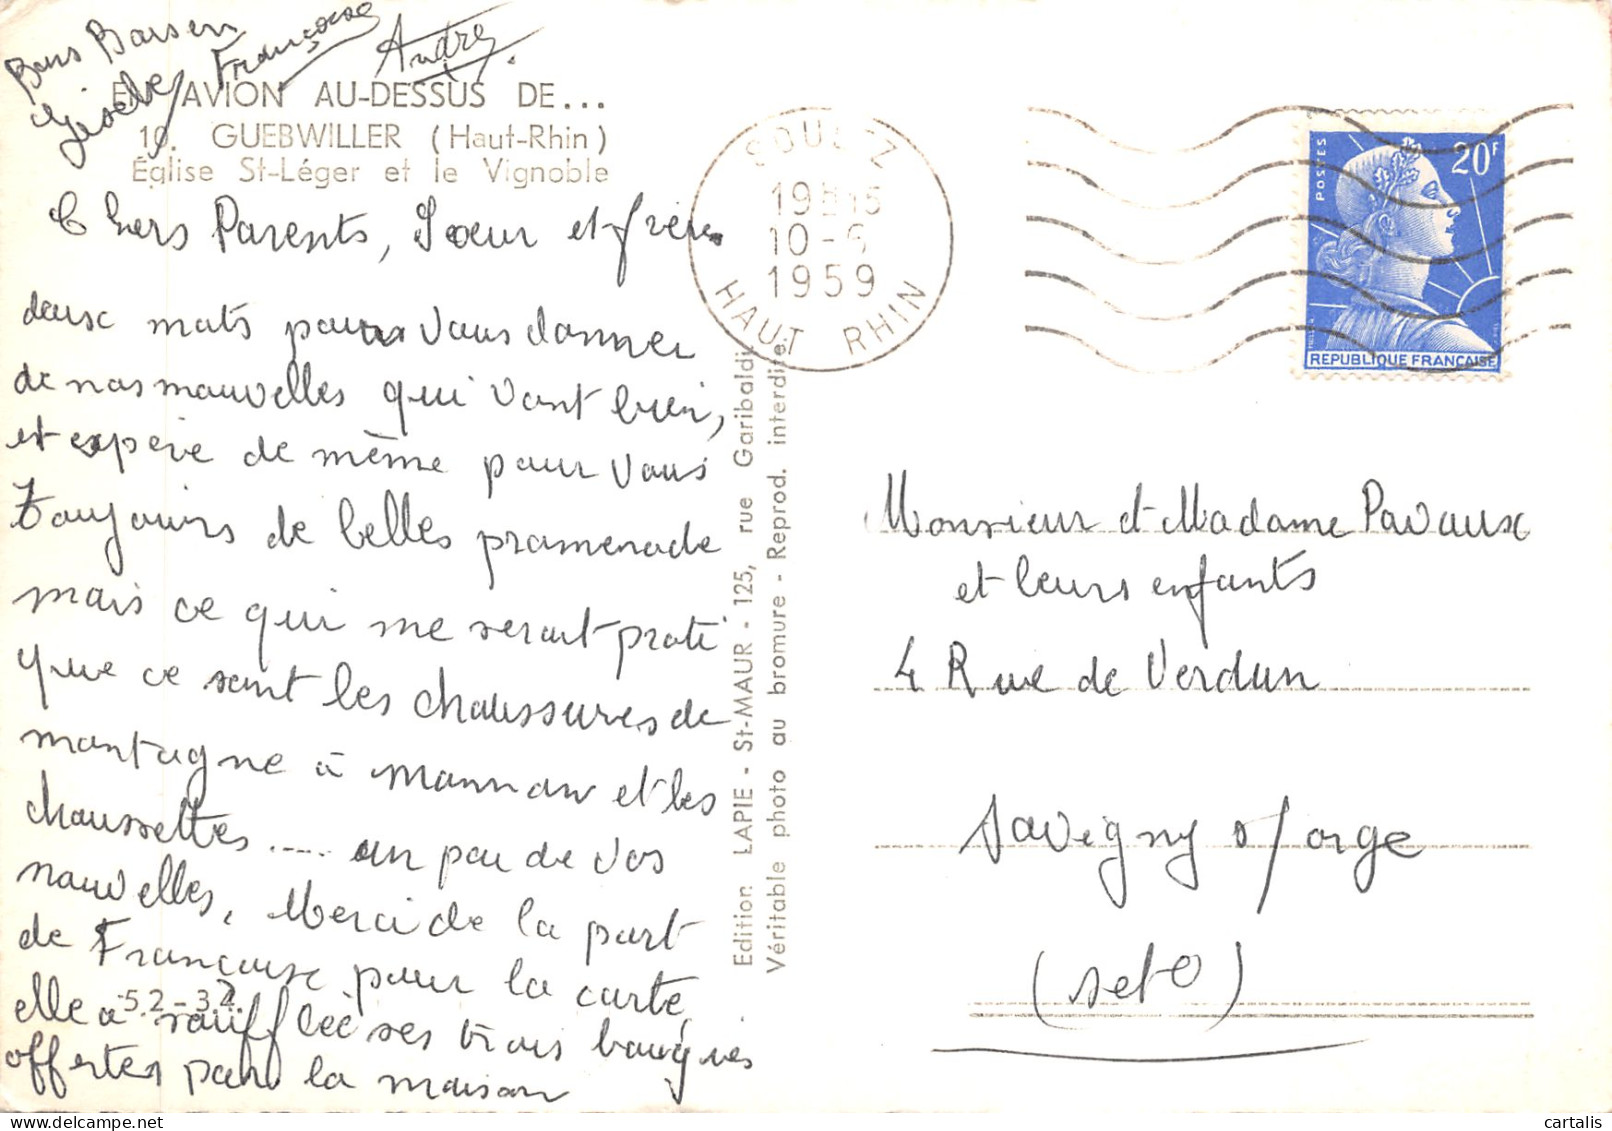 Bons Baisers
Gisèle Françoise André
EN AVION AU-DESSUS DE...
10. GUEBWILLER (Haut-Rhin)
Église St-Léger et le Vignoble
Chers Parents, Soeur et frères
deux mots pour vous donner
de nos nouvelles qui vont bien,
et espère de même pour vous
toujours de belles promenade
mais ce qui me serait prati
que ce sont les chaussures de
montagne à maman et les
chaussettes .... un peu de vos
nouvelles, Merci de la part
de Françoise pour la carte
elle a soufflée ses trois bougies
offertes par la maison
52-32.
Edition LAPIE - St-MAUR - 125, rue Garibaldi
Véritable photo au bromure - Reprod. interdite.
SOULTZ
19H15
10-6
1959
HAUT RHIN
POSTES
20F
REPUBLIQUE FRANÇAISE
Monsieur et Madame Pavaux
et leurs enfants
4 Rue de Verdun
Savigny s/ orge
(Set O)
cartalis